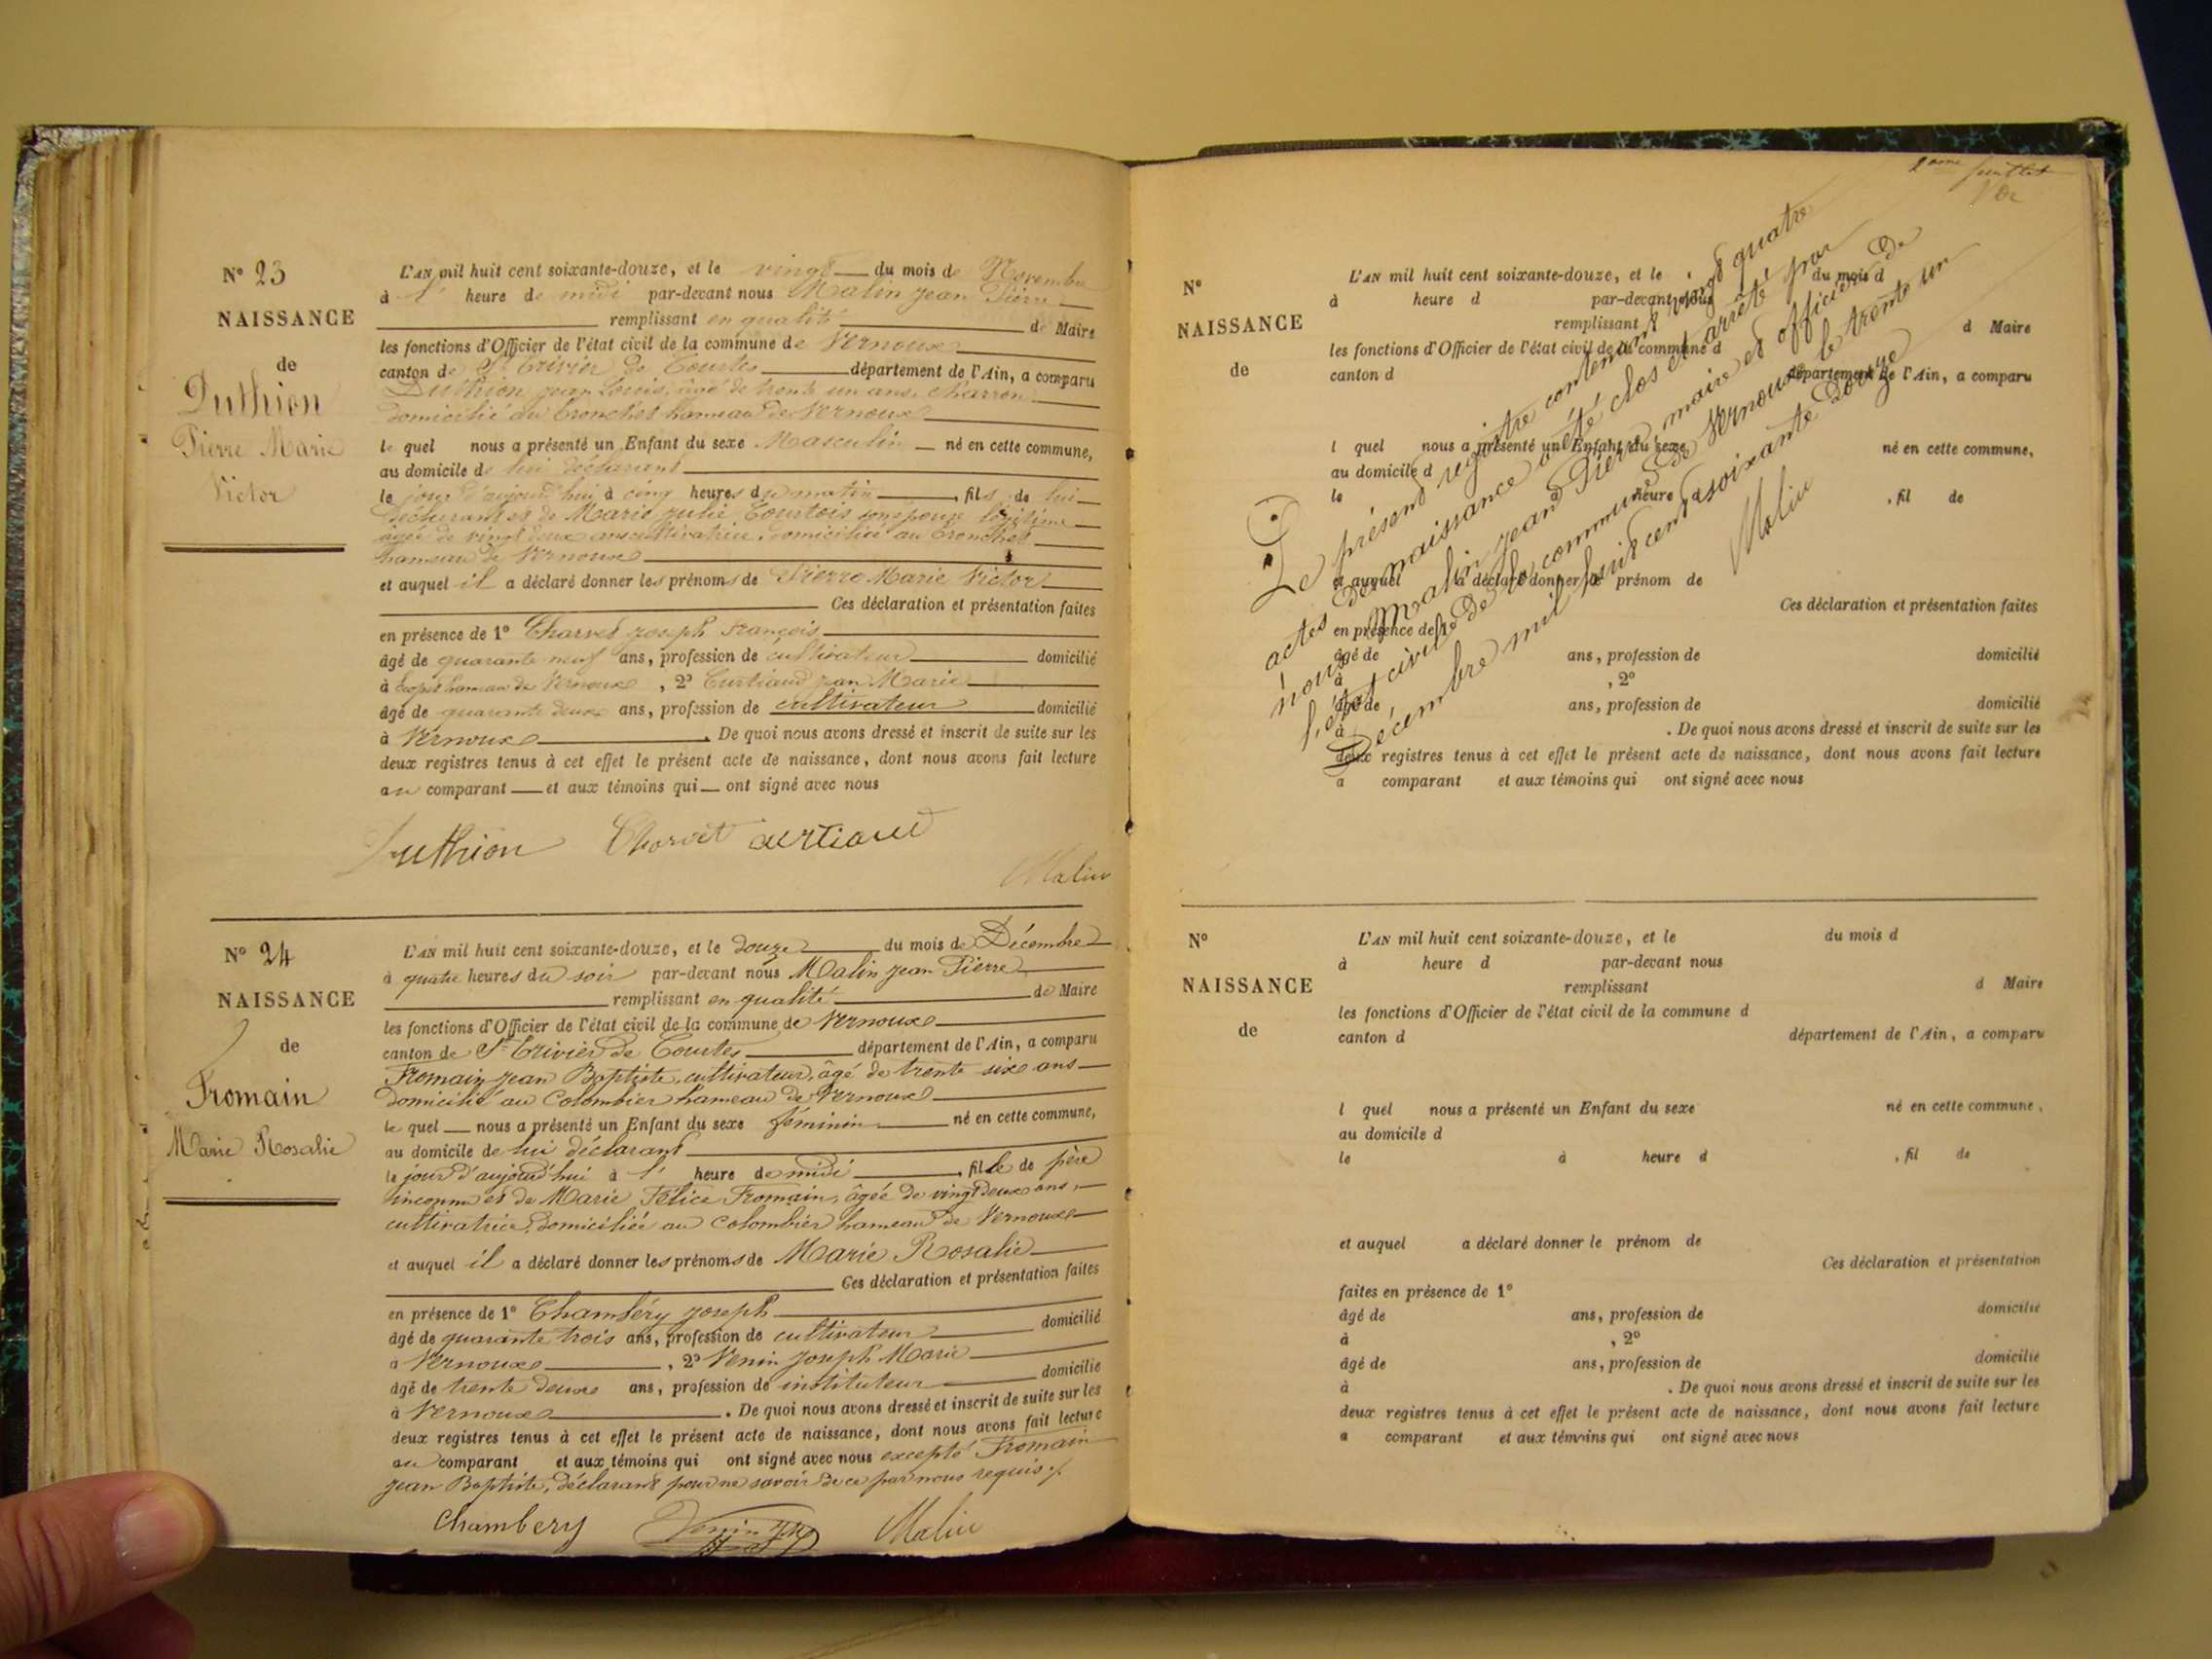 N° 23
NAISSANCE
de
Duthion
Pierre Marie
Victor
L'AN mil huit cent soixante-douze, et le vingt du mois de Novembre
à l' heure de midi par-devant nous Malin Jean Pierre
remplissant en qualité de Maire
les fonctions d'Officier de l'état civil de la commune de Vernoux
canton de St Trivier de Courtes département de l'Ain, a comparu
Duthion Jean Louis, âgé de trente un ans, charron
domicilié au Cronchet hameau de Vernoux
le quel nous a présenté un Enfant du sexe Masculin né en cette commune,
au domicile de lui déclarant
le jour d'aujourd'hui à cinq heures du matin, fils de lui
déclarant et de Marie Julie Courtois son épouse légitime
âgée de vingt deux ans cultivatrice, domiciliée au Cronchet
hameau de Vernoux
et auquel il a déclaré donner les prénoms de Pierre Marie Victor
Ces déclaration et présentation faites
en présence de 1° Charvet Joseph François
âgé de quarante neuf ans, profession de cultivateur domicilié
à hameau de Vernoux, 2° Curtiaud Jean Marie
âgé de quarante deux ans, profession de cultivateur domicilié
à Vernoux. De quoi nous avons dressé et inscrit de suite sur les
deux registres tenus à cet effet le présent acte de naissance, dont nous avons fait lecture
au comparant et aux témoins qui ont signé avec nous
Duthion Charvet curtiaud
Malin
N° 24
NAISSANCE
de
Fromain
Marie Rosalie
L'AN mil huit cent soixante-douze, et le douze du mois de Décembre
à quatre heures du soir par-devant nous Malin Jean Pierre
remplissant en qualité de Maire
les fonctions d'Officier de l'état civil de la commune de Vernoux
canton de St Trivier de Courtes département de l'Ain, a comparu
Fromain Jean Baptiste, cultivateur, âgé de trente six ans
domicilié au Colombier hameau de Vernoux
le quel nous a présenté un Enfant du sexe féminin né en cette commune,
au domicile de lui déclarant
le jour d'aujourd'hui à l' heure de midi, fille de père
inconnu et de Marie Félice Fromain, âgée de vingt deux ans,
cultivatrice, domiciliée au Colombier hameau de Vernoux
et auquel il a déclaré donner les prénoms de Marie Rosalie
Ces déclaration et présentation faites
en présence de 1° Chambéry Joseph
âgé de quarante trois ans, profession de cultivateur domicilié
à Vernoux, 2° Venin Joseph Marie
âgé de trente deux ans, profession de instituteur domicilié
à Vernoux. De quoi nous avons dressé et inscrit de suite sur les
deux registres tenus à cet effet le présent acte de naissance, dont nous avons fait lecture
au comparant et aux témoins qui ont signé avec nous excepté Fromain
Jean Baptiste, déclarant pour ne savoir de ce par nous requis ./.
Chambery Venin Malin
feuillet
N°
NAISSANCE
de
L'AN mil huit cent soixante-douze, et le du mois d
à heure d par-devant nous
remplissant d Maire
les fonctions d'Officier de l'état civil de la commune d
canton d département de l'Ain, a comparu
l quel nous a présenté un Enfant du sexe né en cette commune,
au domicile d
le à heure d , fil de
et auquel a déclaré donner le prénom de
Ces déclaration et présentation faites
en présence de 1°
âgé de ans, profession de domicilié
à , 2°
âgé de ans, profession de domicilié
à . De quoi nous avons dressé et inscrit de suite sur les
deux registres tenus à cet effet le présent acte de naissance, dont nous avons fait lecture
a comparant et aux témoins qui ont signé avec nous
Le présent registre contenant vingt quatre
actes de naissance a été clos et arrêté par
nous Malin Jean Pierre, maire et officier de
l'état civil de la commune de Vernoux le trente un
Décembre mil huit cent soixante douze
Malin
N°
NAISSANCE
de
L'AN mil huit cent soixante-douze, et le du mois d
à heure d par-devant nous
remplissant d Maire
les fonctions d'Officier de l'état civil de la commune d
canton d département de l'Ain, a comparu
l quel nous a présenté un Enfant du sexe né en cette commune,
au domicile d
le à heure d , fil de
et auquel a déclaré donner le prénom de
Ces déclaration et présentation
faites en présence de 1°
âgé de ans, profession de domicilié
à , 2°
âgé de ans, profession de domicilié
à . De quoi nous avons dressé et inscrit de suite sur les
deux registres tenus à cet effet le présent acte de naissance, dont nous avons fait lecture
a comparant et aux témoins qui ont signé avec nous